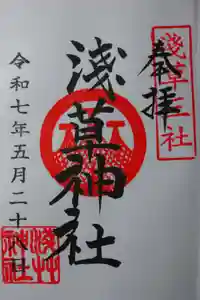 奉拝
淺草三社
浅草神社
令和七年五月二十八日
浅草神社